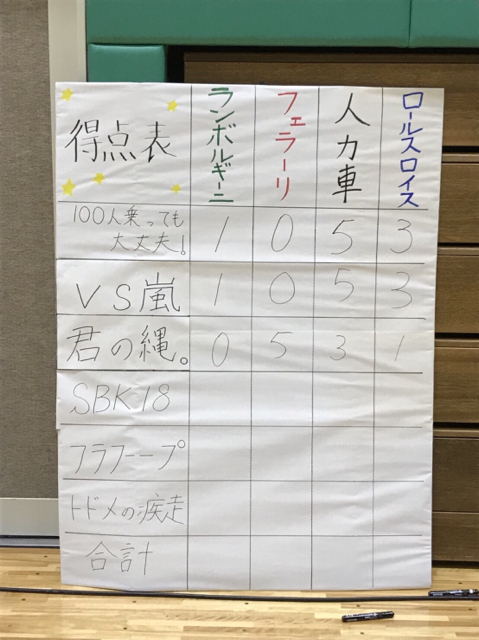 得点表 ランボルギーニ フェラーリ 人力車 ロールスロイス
100人乗っても
大丈夫! 1 0 5 3
VS嵐 1 0 5 3
君の縄。 0 5 3 1
SBK18
フラフープ
トドメの疾走
合計